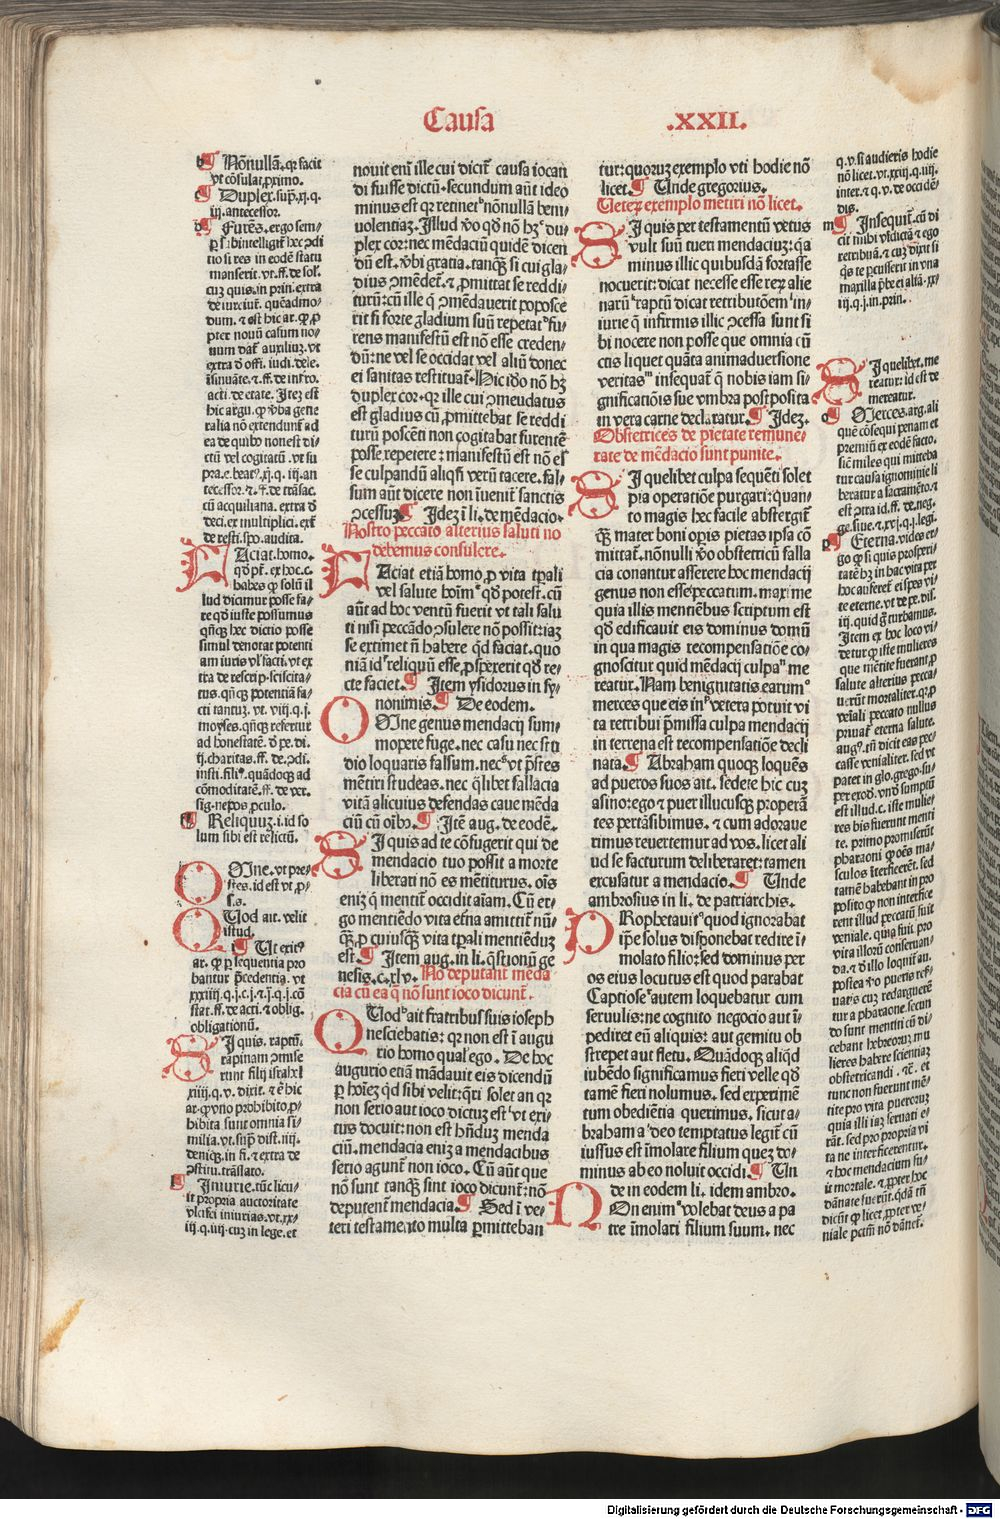 Causa .XXII.
b¶ Nōnullā. qꝛ facit
vt cōsulat ꝓximo.
c¶ Duplex. supͣ. xj. q.
iij. antecessor.
d¶ Furēs. ergo sem-
tio si res in eodē statu
manserit. vt. ff. de sol.
cuꝫ quis. in prin. extra
de iureiur. quēadmo-
dum. ⁊ est hic ar. ꝙ ꝓ
pter nouū casum no-
uum daꝉ auxiliuꝫ. vt
extra d̓ offi. iudi. dele.
insinuāte. ⁊. ff. de in ro.
acti. de etate. Itez est
hic argu. ꝙ v̓ba gene
ralia nō extendunt̄ ad
ea de quibꝰ non est di-
ctū vel cogitatū. vt su
pra. e. beatꝰ. xj. q. iij. an
tecessor. ⁊. ff. de trāsac.
cū acquiliana. extra d̓
deci. ex multiplici. ext̄
de resti. spo. audita.
FAciat. homo.
habes ꝙ solū il
lud dicimur posse fa-
re qd̓ iuste possumus
qn̄qꝫ hec dictio posse
simul denotat potenti
am iuris vl̓ facti. vt ex
tra de rescrip. sciscita-
tus. qn̄qꝫ potentiā fa-
cti tantuꝫ. vt. viij. q. j.
moyses. qn̄qꝫ refertur
ad honestatē. d̓ pe. di.
ij. charitas. ff. de ↄdi.
insti. filiꝰ. quādoqꝫ ad
cōmoditatē. ff. de ver.
sig. nepos ꝓculo.
e¶ Reliquuꝫ. i. id so
lum sibi est relictū.
OMne. vt pre-
stes. id est vt ꝓ-
f. s.
QUod ait. velit
istud.
¶ Ut exitꝰ
ar. ꝙ ꝑ sequentia pro
bantur p̄cedentia. vt
xxxiij. q. j. c. j. ⁊. j. q. j. cō
stat. ff. de acti. ⁊ oblig.
obligationū.
SI quis. raptū.
rapinam ↄmise
runt filij israhel
xiiij. q. v. dixit. ⁊ ē hic
ar. ꝙ vno prohibito ꝓ-
hibita sunt omnia si-
milia. vt. supͣ dist. iiij.
deniqꝫ. in fi. ⁊ extra de
ↄstitu. trāslato.
k¶ Iniurie. tūc licu-
it propria auctoritate
vlcisci iniurias. vt. xx-
iij. q. iiij. cuꝫ in lege. et
nouit eni̇ ille cui dicit̄ causa iocan
di fuisse dictū. secundum aūt ideo
minus est qꝛ retinetᵇ nōnullā beni
uolentiaꝫ. Illud vo qd̓ nō hꝫᶜ du-
plex cor: nec mēdaciū quidē dicen
dū est. v̓bi gratia. tanqꝫ si cui gla-
dius ↄmēdet̄. ⁊ ꝓmittat se reddi-
turū: cū ille q̄ ↄmēdauerit poposce
rit si forte gladium suū repetatᵈ fu-
rens manifestū est nō esse creden-
dū: ne vel se occidat vel aliū donec
ei sanitas restituat. Hic iđo nō hꝫ
duplex cor. qꝛ ille cui ↄmēdatus
est gladius cū ꝓmittebat se reddi
turū poscēti non cogitabat furentē
posse repetere: manifestū est nō eſ
se culpandū aliqn̄ verū tacere. fal-
sum aūt dicere non inuenit̄ sanctis
ↄcessuꝫ. ¶ Idez ī li. de mēdacio.
Nostro peccato alterius saluti no
debemus consulere.
FAciat etiā homo ꝓ vita tꝑali
vel salute hoīmᵃ qd̓ potest. cū
aūt ad hoc ventū fuerit vt tali salu
ti nisi peccādo ↄsulere nō possit: iaꝫ
se extimet n̄ habere qd̓ faciat. quo
niā idᵉ reliquū esse ꝓspexerit qd̓ re-
cte faciet. ¶ Item ysidorus in sy-
nonimis. ¶ De eodem.
OMne genus mendacij sum-
mopere fuge. nec casu nec stu
dio loquaris falsum. necᵍ vt p̄stes
mētiri studeas. nec q̄libet fallacia
vitā alicuius defendas caue mēda
ciū cū oībꝰ. ¶ Itē aug. de eodē.
SI quis ad te cōfugerit qui de
mendacio tuo possit a morte
liberari nō es mētiturus. oīs
eniꝫ q̄ mentit̄ occidit aīam. Cū er-
go mentiēdo vita et̄na amittit̄ nū-
qꝫ ꝓ cuiusqꝫ vita tꝑali mentiēduꝫ
est. ¶ Item aug. in li. q̄stionū ge
nesis. c. xlv. No deputant̄ menda
cia cū ea q̄ nō sunt ioco dicunt̄.
QUodʰ ait fratribus suis ioseph
nesciebatis: qꝛ non est i augu
rio homo qual' ego. De hoc
augurio etiā mādauit eis dicendū
ꝑ hoīeꝫ qd̓ sibi velit: qri solet an qꝛ
non serio aut ioco dictuꝫ estⁱ vt exi
tus docuit: non est hn̄duꝫ menda
ciū. mendacia eniꝫ a mendacibus
serio agunt̄ non ioco. Cū aūt que
nō sunt tanqꝫ sint ioco dicunt̄: nō
deputent̄ mendacia. ¶ Sed i ve-
teri testamento multa ꝑmitteban
tur: quoruꝫ exemplo vti hodie nō
licet. ¶ Unde gregorius.
Ueterꝫ exemplo metiri nō licet.
SI quis per testamentū vetus
vult suū tueri mendaciuꝫ: q̄a
minus illic quibusdā fortasse
nocuerit: dicat necesse esse rerꝫ alie
narū raptū dicat retributōem in-
iurie q̄ infirmis illic ↄcessa sunt si
bi nocere non posse que omnia cū
ctis liquet quāta animaduersione
veritasᵐ insequat̄ q̄ nobis iam si-
gnificatiōis sue vmbra postposita
in vera carne declaratur. ¶ Idez.
Obstetrices de pietate remune-
rate de mēdacio sunt punite.
SI quelibet culpa sequēti solet
pia operatiōe purgari: quan-
to magis hec facile abstergit̄
qꝫ mater boni operis pietas ipsa cō
mittat̄. nōnulli vo obstetricū falla
cia conantur asserere hoc mendacij
genus non esse peccatum. maxime
quia illis mentiēbus scriptum est
qd̓ edificauit eis dominus domū
in qua magis recompensatiōe co-
gnoscitur quid mēdacij culpaⁿ me
reatur. Nam benignitatis earumᵒ
merces que eis inᵖ vetera potuit vi
ta retribui p̄missa culpa mendacij
in terrena est recompensatiōe decli
nata. ¶ Abraham quoqꝫ loquēs
ad pueros suos ait. sedete hic cuꝫ
asino: ego ⁊ puer illucusqꝫ properā
tes pertāsibimus. ⁊ cum adoraue
rimus reuertemur ad vos. licet ali
ud se facturum deliberaret: tamen
excusatur a mendacio. ¶ Unde
ambrosius in li. de patriarchis.
PRophetauitᵃ quod ignorabat
ip̄e solus disponebat redire i̇
molato filio: sed dominus per
os eius locutus est quod parabat
Captioseᵗ autem loquebatur cum
seruulis: ne cognito negocio aut ī
pediret en̄ aliquis: aut gemitu ob
streperet aut fletu. Quādoqꝫ aliqd̓
iubēdo significamus fieri velle qd̓
tamē fieri nolumus. sed experimē
tum obediētia querimus. sicut a-
brahamᵃ deo temptatus legit̄ cū
iussus est imolare filium quez do-
minus ab eo noluit occidi. ¶ Un
de in eodem li. idem ambro.
NOn enimˣ volebat deus a pa
tre īmolari filium suum. nec
q. v. si audieris hodie
nō licet. vt. xxiij. q. iiij.
inter. ⁊ q. v. de occidē-
dis.
m¶ Insequit̄. cū di
cit mihi vīdictā ⁊ ego
retribuā. ⁊ cuꝫ dixit si
q̄s te ꝑcusserit in vna
maxilla p̄be ei altā. xx-
iij. q. j. in prin.
SI quelibꝫ. me
reatur: id est de
mereatur.
o¶ Merces. arg. ali
quē cōsequi penam et
premiū ex eodē facto.
sic̄ miles qui mitteba
tur causa ignominie li
beratur a sacramēto. ⁊
est ↄtra id. ff. de. neg.
ge. siue. ⁊. xvj. q. j. legi.
p¶ Eterna. vides er-
go ꝙ si quis prosperi-
tatē hꝫ in hac vita per
hoc auferet̄ ei spes vi-
te eterne. vt de pe. dis.
iij. quid ḡ turbamus.
Item ex hoc loco vi-
detur ꝙ iste mulieres
que mētite fuerant ꝓ
salute alterius pecca-
uerūt mortaliter. qꝛ ꝓ
veīali peccato nullus
priuat̄ eterna salute.
augꝰ. tn̄ dicit eas pec-
casse venialiter. sed vt
patet in glo. grego. su-
per exod. vn̄ sumptū
est illud. c. iste mulie-
res bis fuerunt menti
te. primo promiserūt
pharaoni ꝙ oēs ma-
sculos īterficerēt. sed
tamē habebant in pro
posito ꝙ non interfice
rent illud peccatū fuit
veniale. quia fuit pro
vita illorū conseruan-
da. ⁊ d̓ illo loquit̄ au.
postea v̓o pueris ref-
uatis cuꝫ redarguerē
tur a pharaone. secun
do sunt mentiti cū di-
cebant hebreoruꝫ mu
lieres habere scientiaꝫ
obstetricandi. ⁊cͣ. et
tunc non fuerunt mē-
tite pro vita pueroruꝫ
quia illi iaꝫ seruati e-
rāt. sed pro propria vi
ta ne interficerentur.
⁊ hoc mendacium fu-
it mortale. ⁊ ꝓpter hoc
dānate fuerūt. qdā tn̄
dicūt ꝙ licet ꝓpter ve-
niale pctm̄ nō dānet̄.
Digitalisierung gefördert durch die Deutsche Forschungsgemeinschaft - DFG